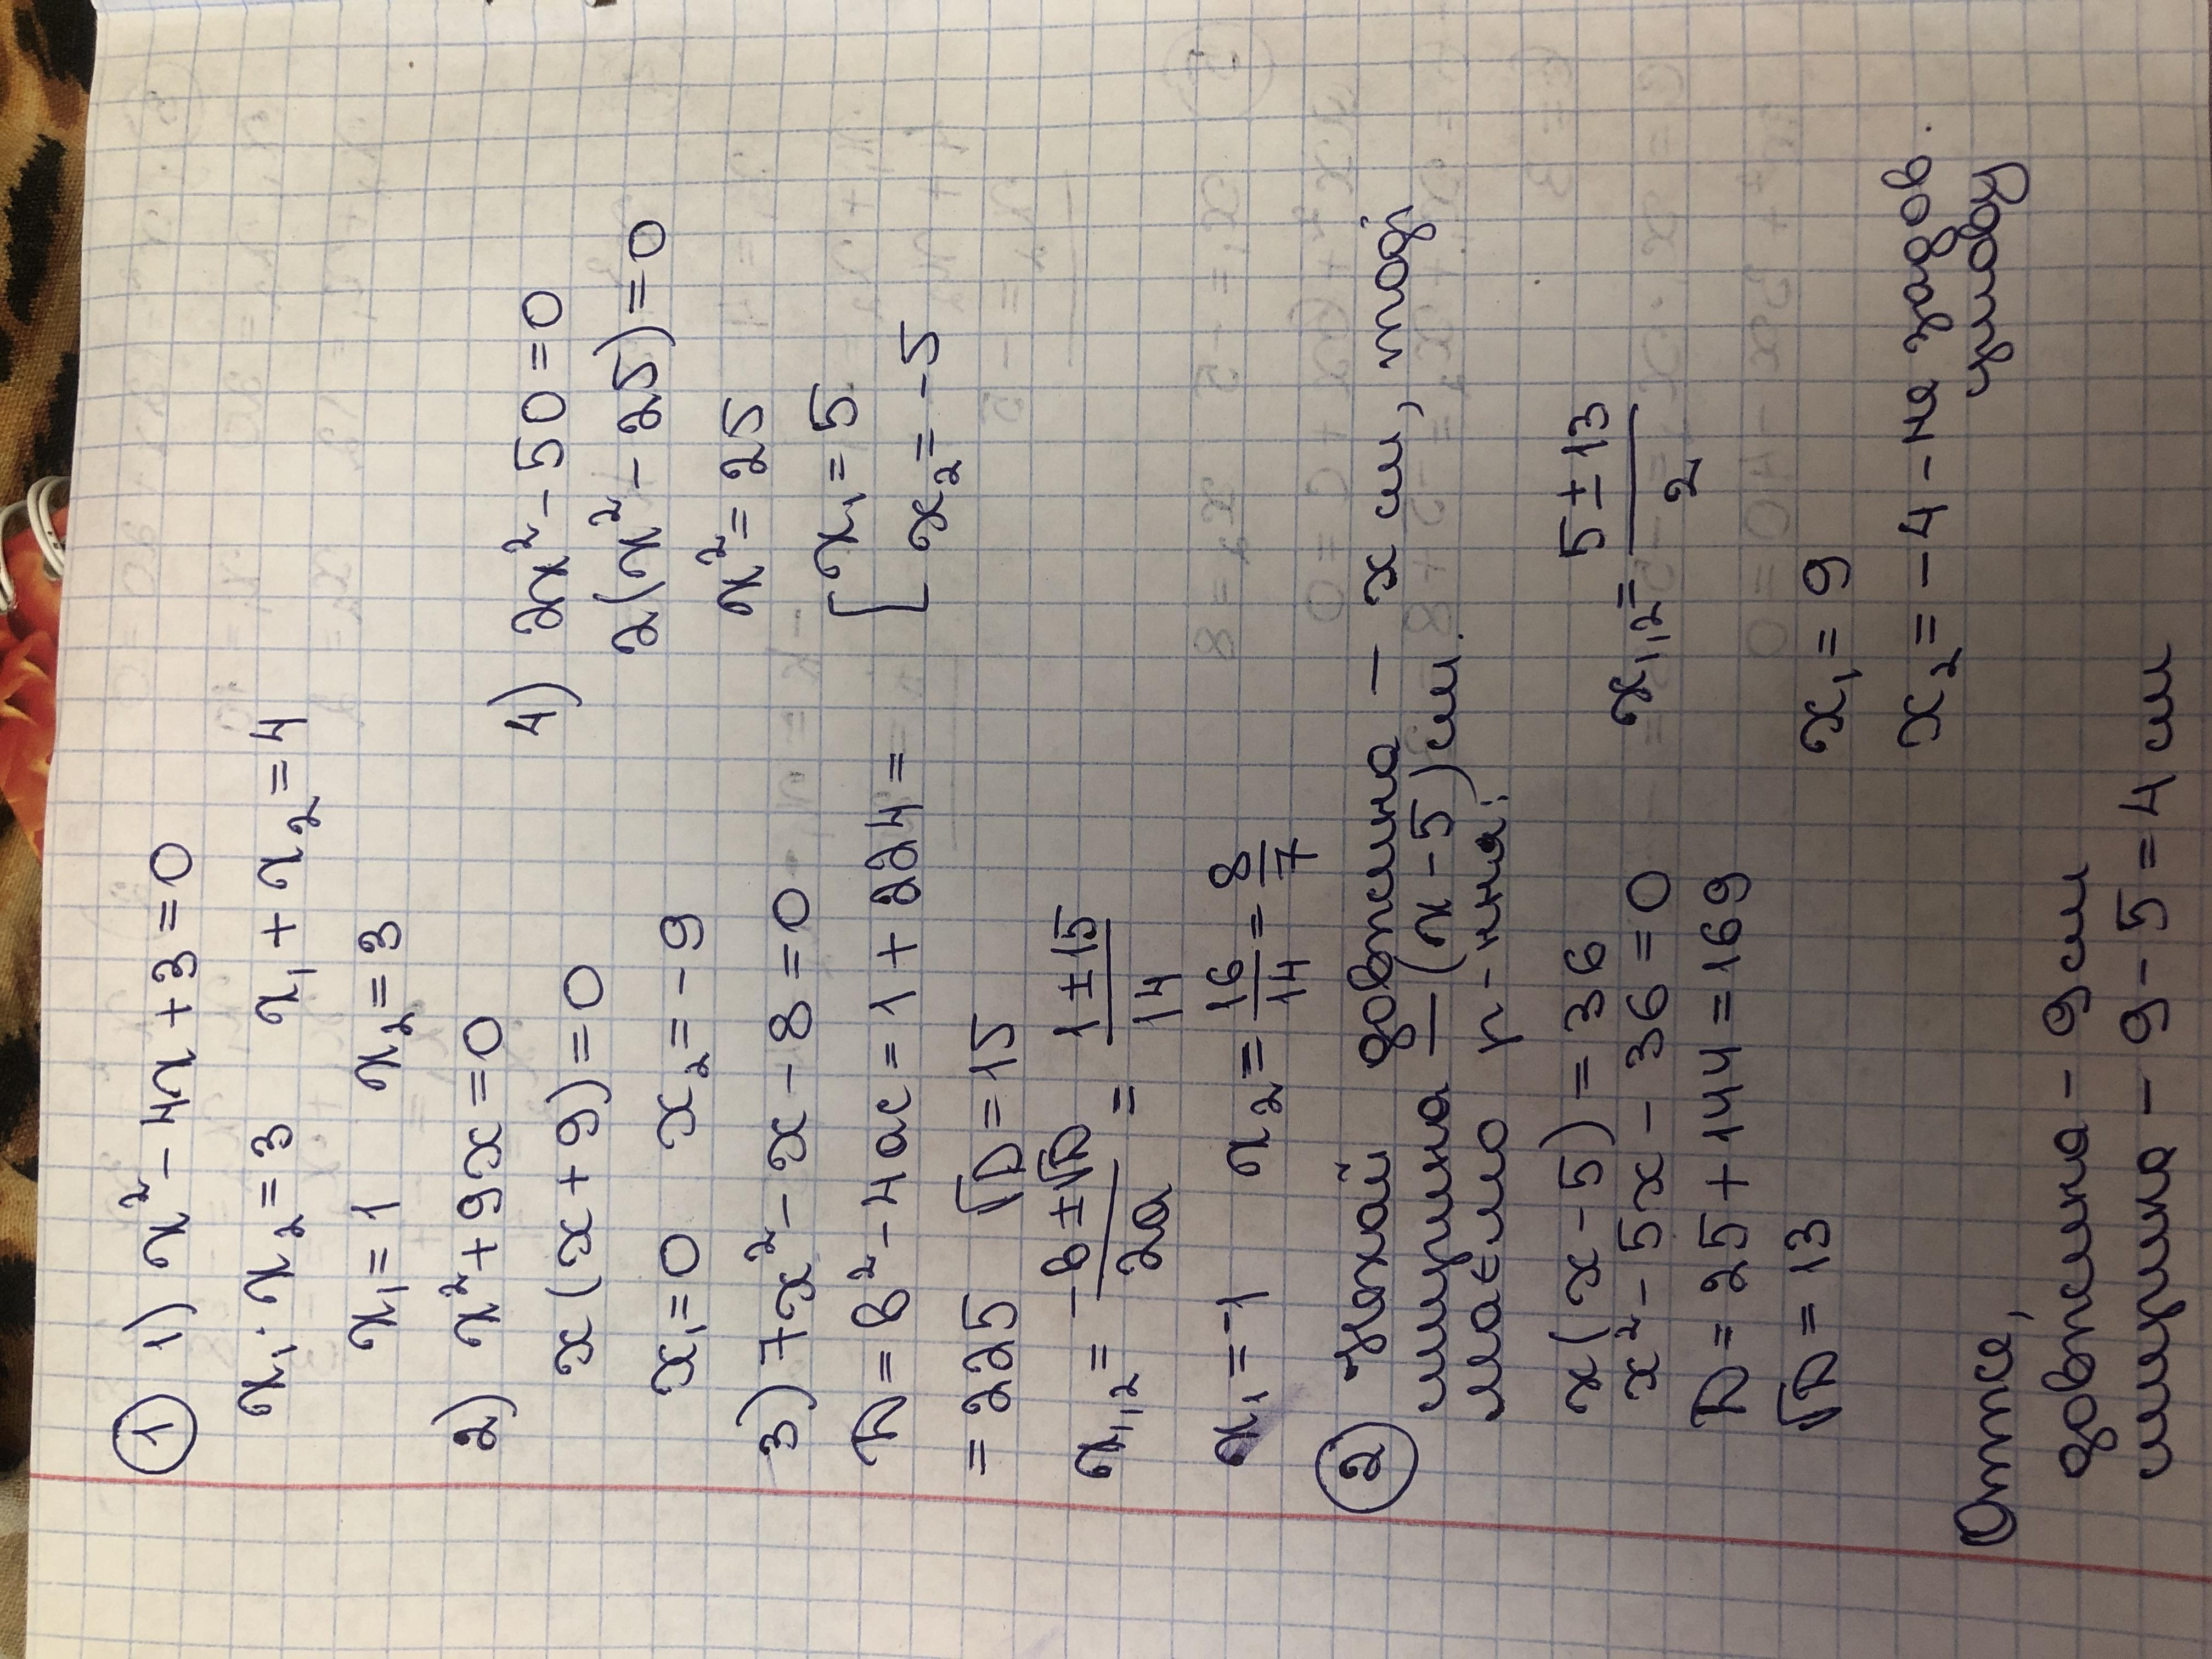 ① 1) x² - 4x + 3 = 0
x₁ · x₂ = 3 x₁ + x₂ = 4
x₁ = 1 x₂ = 3
2) x² + 9x = 0
x(x + 9) = 0
x₁ = 0 x₂ = -9
3) 7x² - x - 8 = 0
D = b² - 4ac = 1 + 224 =
= 225 √D = 15
x₁,₂ = (-b ± √D)/(2a) = (1 ± 15)/14
x₁ = -1 x₂ = 16/14 = 8/7
4) 2x² - 50 = 0
2(x² - 25) = 0
x² = 25
[ x₁ = 5
x₂ = -5
② Нехай довжина — x см, тоді
ширина — (x - 5) см.
маємо р-ння:
x(x - 5) = 36
x² - 5x - 36 = 0
D = 25 + 144 = 169
√D = 13
x₁,₂ = (5 ± 13)/2
x₁ = 9
x₂ = -4 - не задов.
умову
Отже,
довжина - 9 см
ширина - 9 - 5 = 4 см